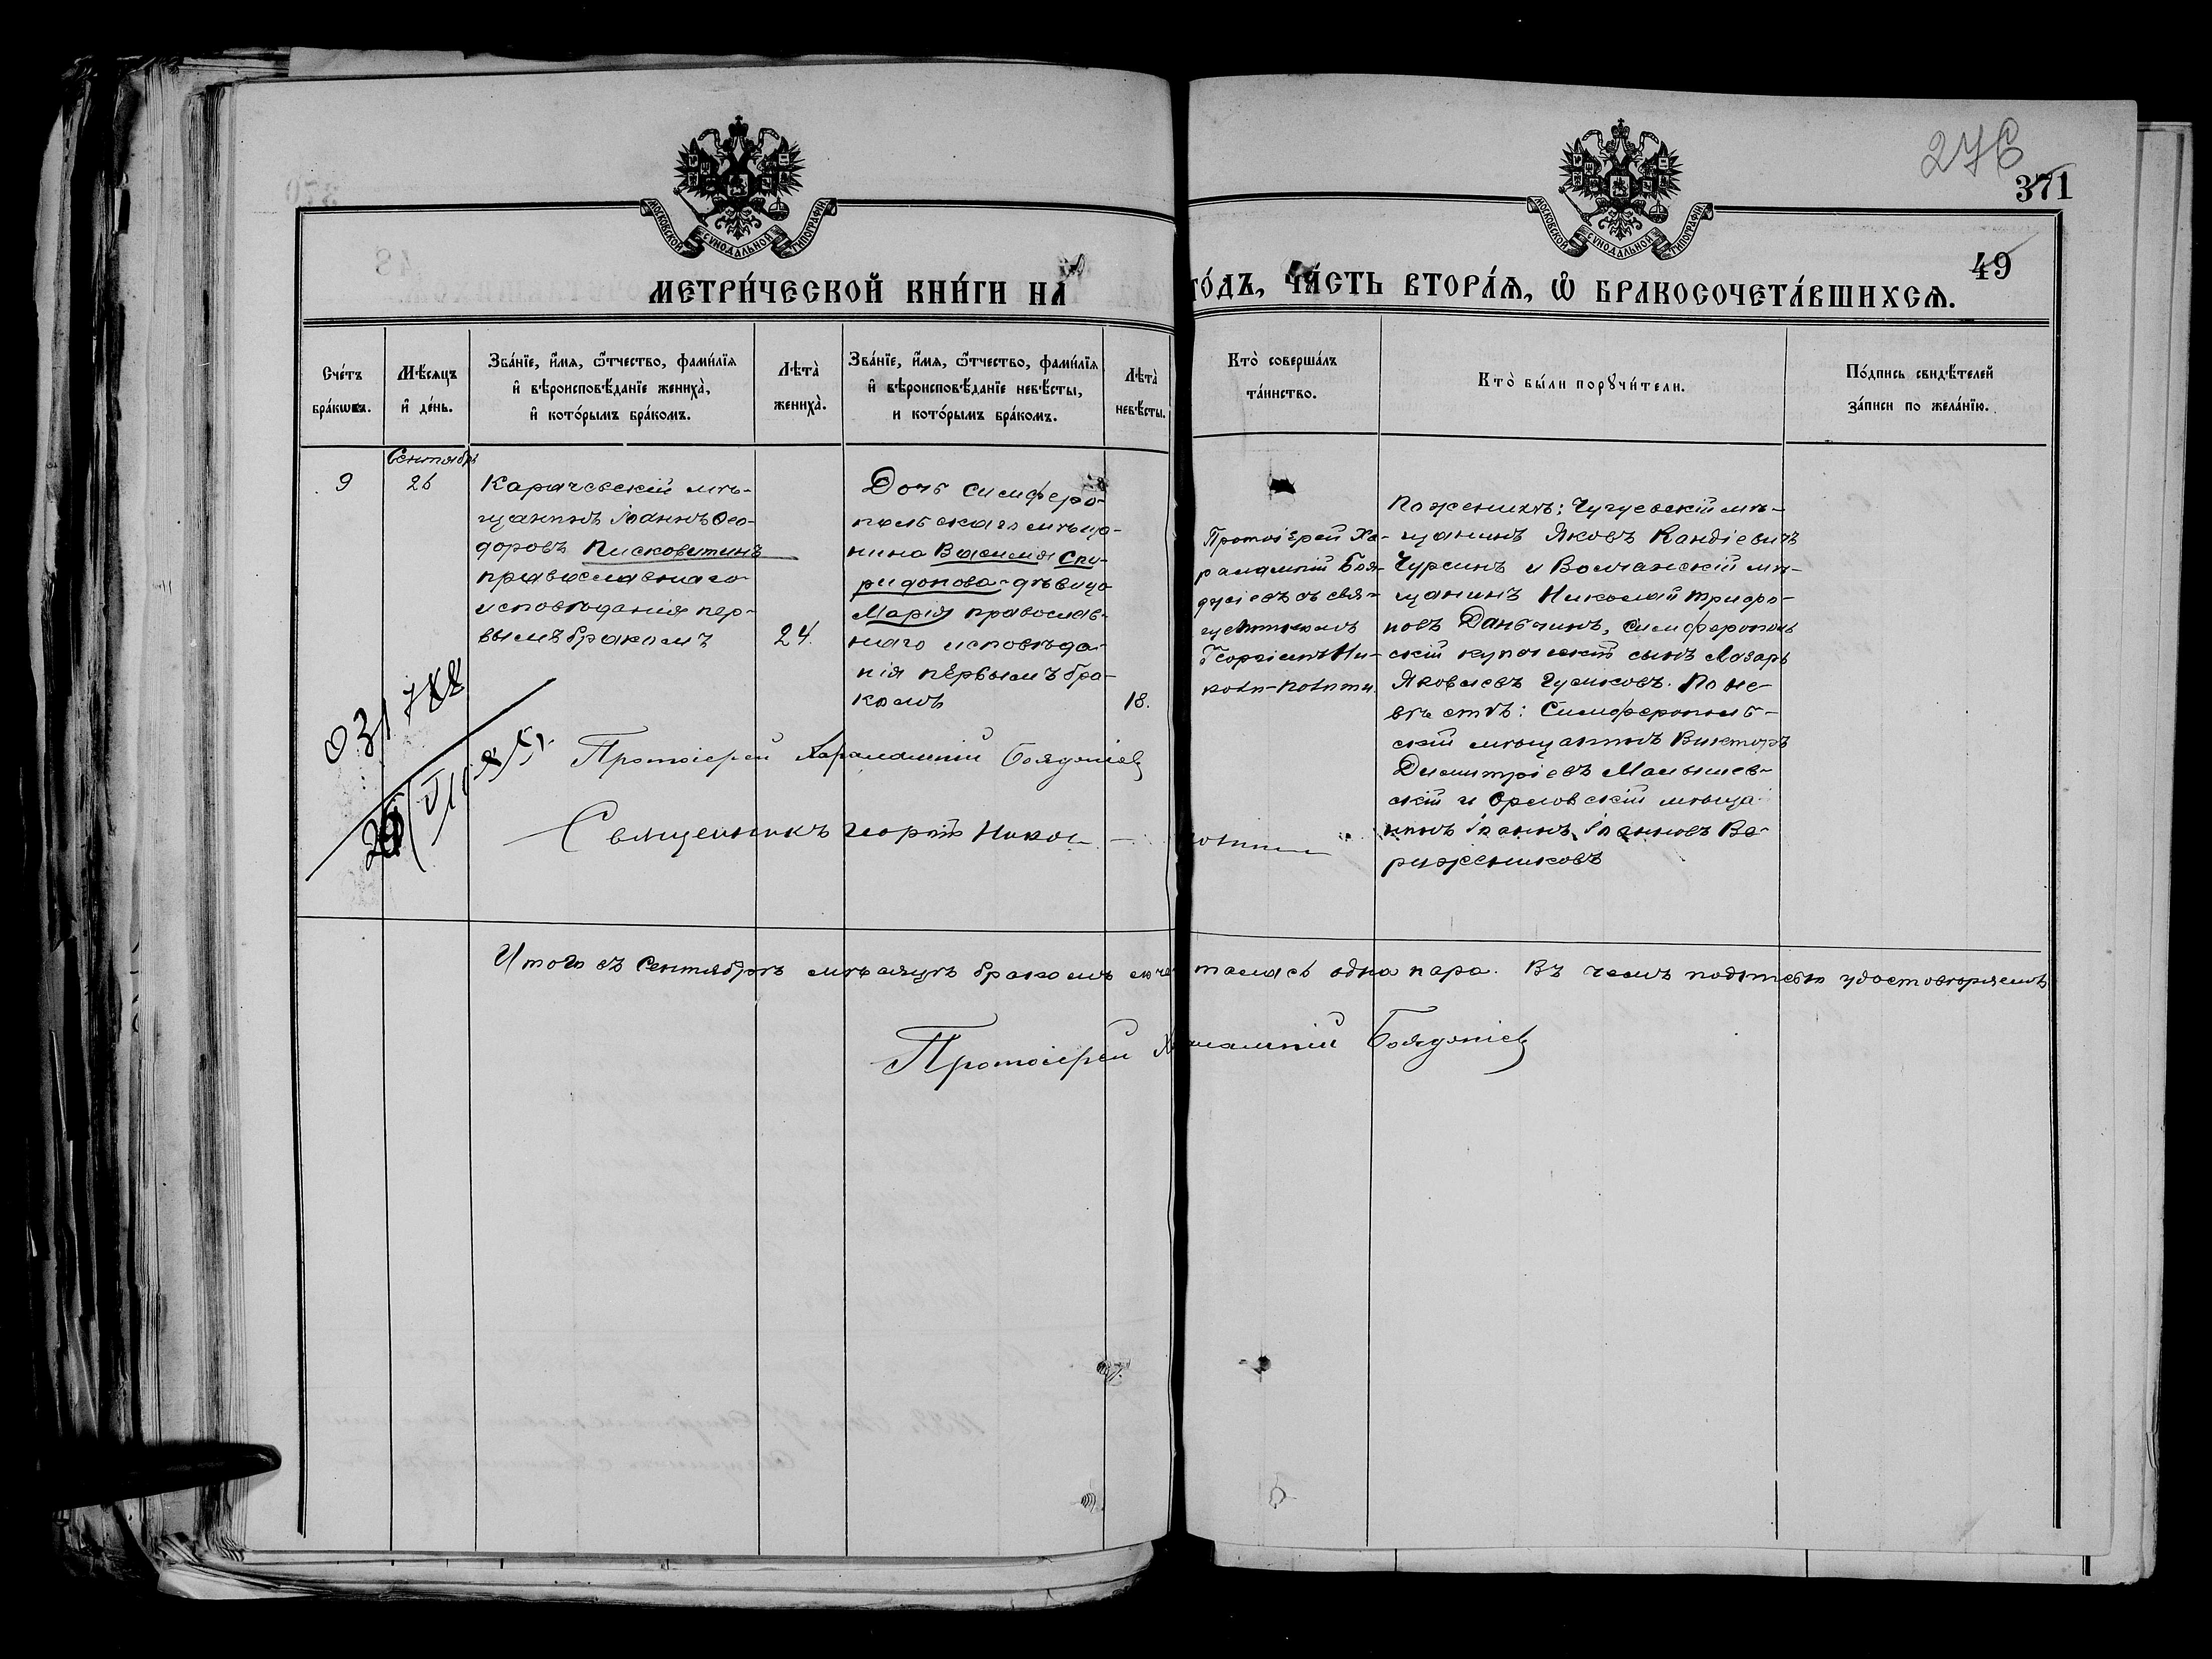 276
371
49
МОСКОВСКОЙ СѴНОДАЛЬНОЙ ТИПОГРАФІИ
МОСКОВСКОЙ СѴНОДАЛЬНОЙ ТИПОГРАФІИ
МЕТРИ́ЧЕСКОЙ КНИ́ГИ НА
ГО́ДЪ, ЧА́СТЬ ВТОРА́Ѧ, Ѡ БРАКОСОЧЕТА́ВШИХСѦ.
Сче́тъ
бра́кѡвъ.
Мѣ́сяцъ
и҆ де́нь.
Зва́нїе, и҆́мя, ѻ҆́тчество, фами́лїя
и҆ вѣроисповѣ́данїе жениха̀,
и҆ кото́рымъ бра́комъ.
Лѣта̀
жениха̀.
Зва́нїе, и҆́мя, ѻ҆́тчество, фами́лїя
и҆ вѣроисповѣ́данїе невѣ́сты,
и кото́рымъ бра́комъ.
Лѣта̀
невѣ́сты.
Кто̀ соверша́лъ
та́инство.
Кто̀ бы́ли порꙋчи́тели.
По́дпись свидѣ́телей
за́писи по жела́нїю.
9
Сентябрь
26
Карачевскій мѣ-
щанинъ Іоаннъ Ѳео-
доровъ Писковитинъ
православнаго
исповѣданія пер-
вымъ бракомъ
24.
Дочь Симферо-
польскаго мѣща-
нина Василія Спи-
ридонова-дѣвица
Марія православ-
наго исповѣда-
нія первымъ бра-
комъ
18.
Протоіерей Ха-
рлампій Бояд-
жіевъ съ свя-
щенникомъ
Георгіемъ Ни-
По женихѣ: Чугуевскій мѣ-
щанинъ Яковъ Кандіевичъ
Чурсинъ и Волчанскій мѣ-
щанинъ Николай Трифо-
новъ Даньчинъ, Симферополь
скій купеческій сынъ Лазарь
Яковлевъ Гуликовъ. По не-
вѣстѣ: Симферополь-
скій мѣщанинъ Викторъ
Димитріевъ Малышев-
скій и Орловскій мѣща-
нинъ Іоаннъ Іоанновъ Ва-
Протоіерей Харалампій Бояджіевъ
Священникъ Георгій Никол
Итого въ Сентябрѣ мѣсяцѣ бракомъ сочеталась одна пара. Въ чемъ подписью удостовѣряемъ
Протоіерей Харалампій Бояджіевъ